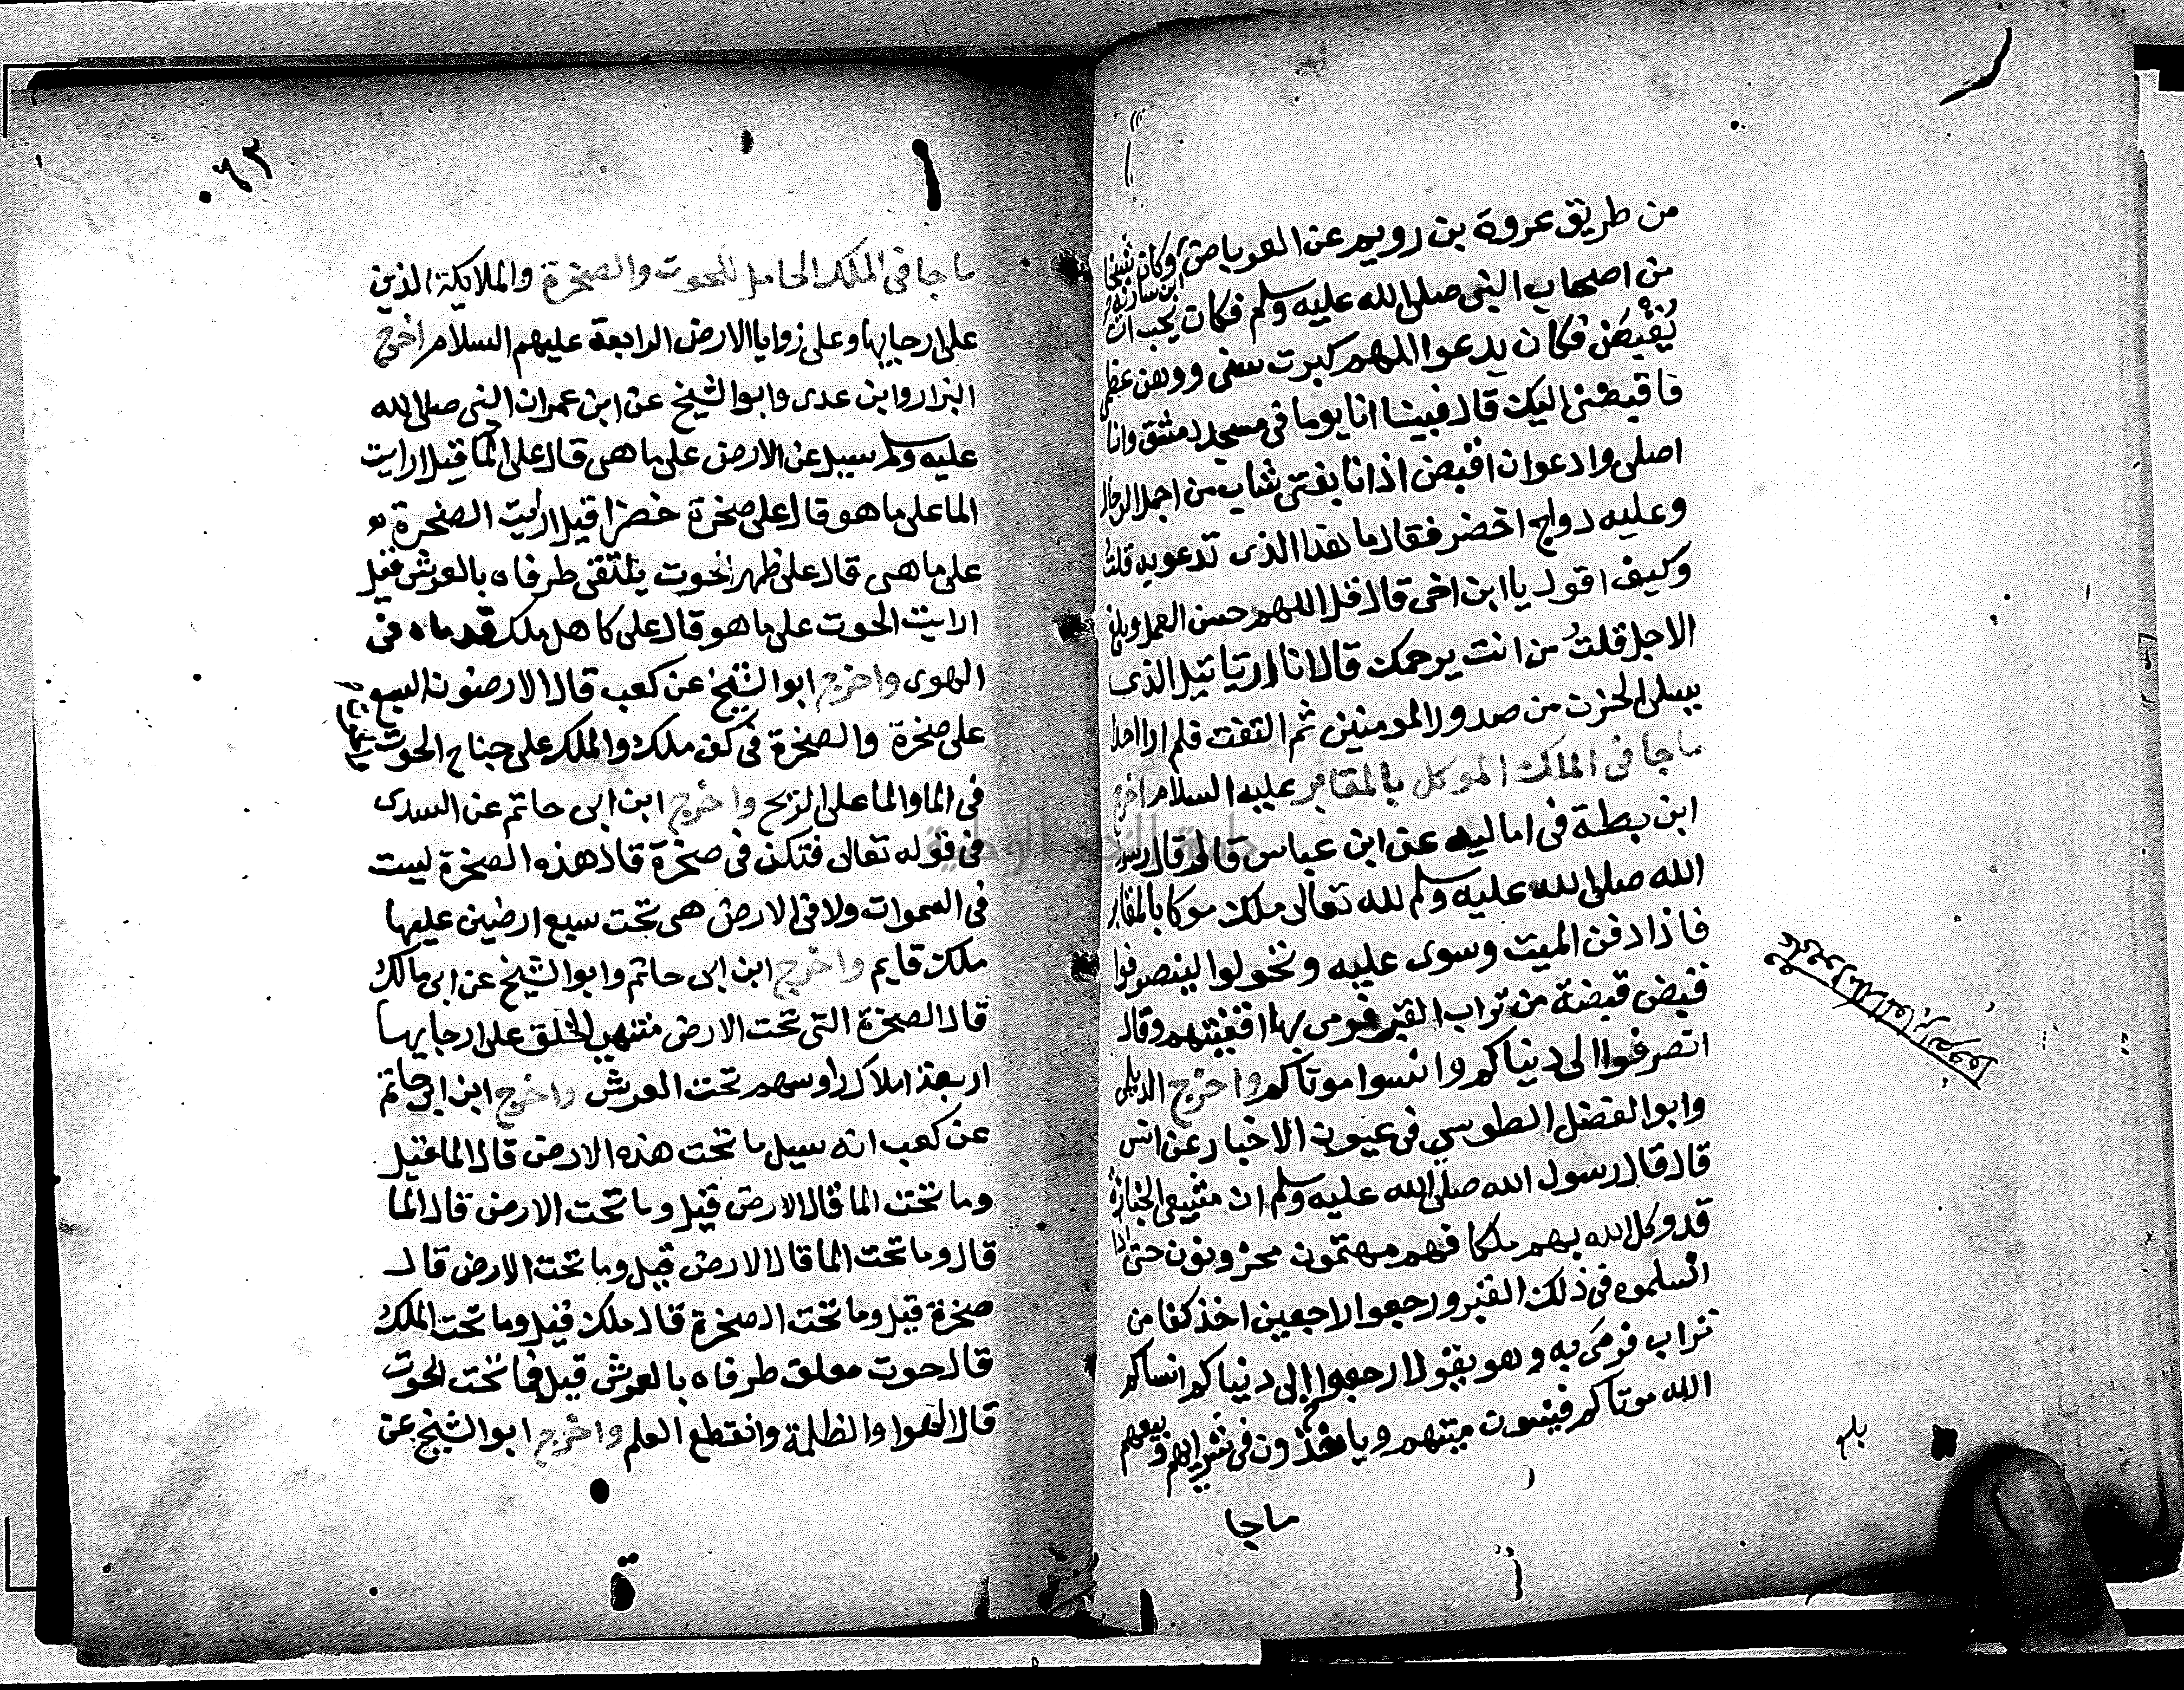 من طريق عروة بن رويم عن العرباض بن سارية وكان شيخا
من اصحاب النبي صلى الله عليه وسلم فكان يحب ان
يُقْبَض فكان يدعوا اللهم كبرت سني ووهن عظمي
فاقبضني اليك قال فبينا انا يوما في مسجد دمشق وانا
اصلي وادعوا ان اقبض اذ انا بفتى شاب من اجمل الرجال
وعليه دواج اخضر فقال ما هذا الذي تدعوبه قلت
وكيف اقول يا ابن اخي قال قل اللهم حسن العمل وبلغ
الاجل قلتُ من انت يرحمك قال انا ارتيائيل الذي
يسلى الحزن من صدور المومنين ثم التفت فلم ارا احدا
ما جا في الملك الموكل بالمقابر عليه السلام اخرج
ابن بطة في اماليه عن ابن عباس قال قال رسول
الله صلى الله عليه وسلم لله تعالى ملك موكل بالمقابر
فاذا دفن الميت وسوى عليه وتحولوا لينصرفوا
قبض قبضة من تراب القبر فرمى بها اقفيتهم وقال
انصرفوا الى دنياكم وانسوا موتاكم واخرج الديلمي
وابوا الفضل الطوسي في عيون الاخبار عن انس
قال قال رسول الله صلى الله عليه وسلم ان مشيعي الجنازة
قد وكل الله بهم ملكا فهم مهتمون محزونون حتى اذا
اسلموه في ذلك القبر ورجعوا راجعين اخذ كفا من
تراب فرمى به وهو يقول ارجعوا الى دنياكم انساكم
الله موتاكم فينسون ميتهم وياخذون في شرايهم وبيعهم
ما جا
بلغ
٦٢
ما جا في الملك الحامل للحوت والصخرة والملايكة الذين
على ارجايها وعلى زوايا الارض الرابعة عليهم السلام اخرج
البزار وابن عدى وابوا الشيخ عن ابن عمر ان النبي صلى الله
عليه وسلم سيل عن الارض على ما هي قال على الما قيل ارايت
الما على ما هو قال على صخرة خضرا قيل ارايت الصخرة
على ما هي قال على ظهر الحوت يلتقى طرفاه بالعرش قيل
ارايت الحوت على ما هو قال على كاهل ملك قدماه في
الهوى واخرج ابوا الشيخ عن كعب قال الارضون السبع
على صخرة والصخرة في كف ملك والملك على جناح الحوت
في الما والما على الريح واخرج ابن ابي حاتم عن السدى
في قوله تعالى فتكن في صخرة قال هذه الصخرة ليست
في السموات ولا في الارض هي تحت سبع ارضين عليها
ملك قايم واخرج ابن ابي حاتم وابوا الشيخ عن ابي مالك
قال الصخرة التي تحت الارض منتهى الخلق على ارجايها
اربعة املاك راوسهم تحت العرش واخرج ابن ابي حاتم
عن كعب انه سيل ما تحت هذه الارض قال الما قيل
وما تحت الما قال الارض قيل وما تحت الارض قال الما
قال وما تحت الما قال الارض قيل وما تحت الارض قال
صخرة قيل وما تحت الصخرة قال ملك قيل وما تحت الملك
قال حوت معلق طرفاه بالعرش قيل فما تحت الحوت
قال الهوا والظلمة وانقطع العلم واخرج ابوا الشيخ عن